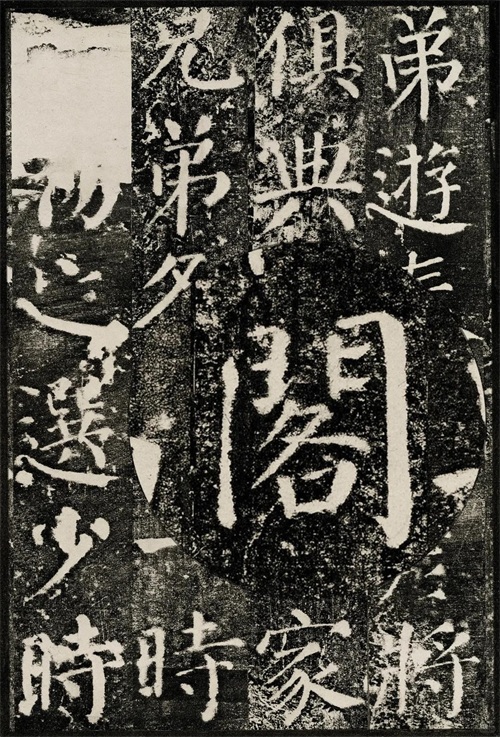 弟遊
將
俱典
家
兄弟夕
時
選少時
閣